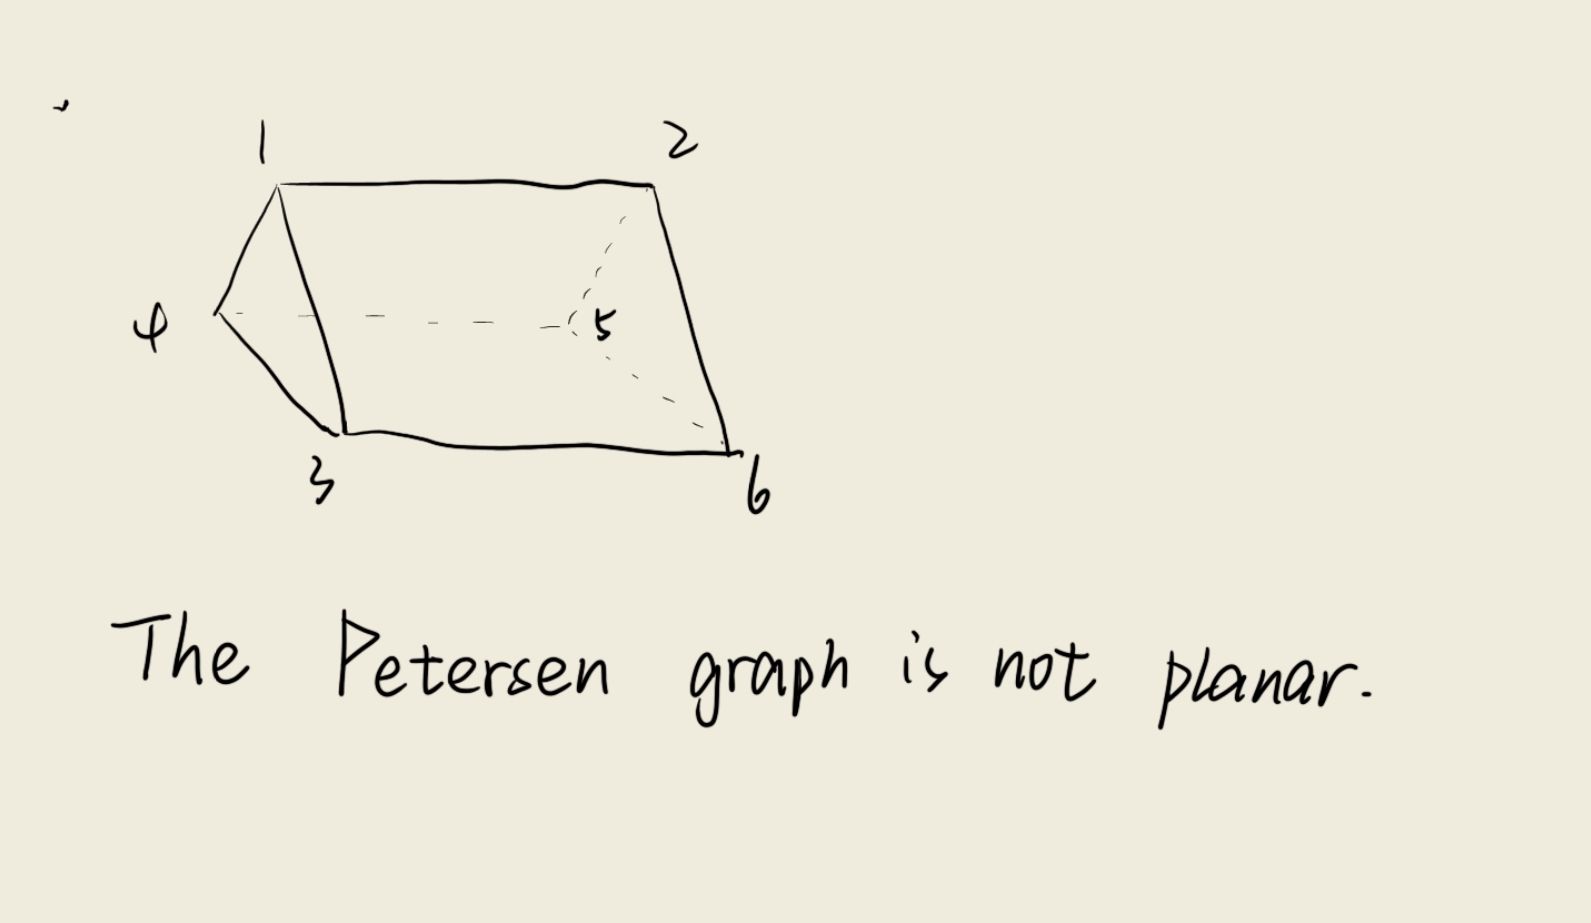 1 2
4 5
3 6
The Petersen graph is not planar.